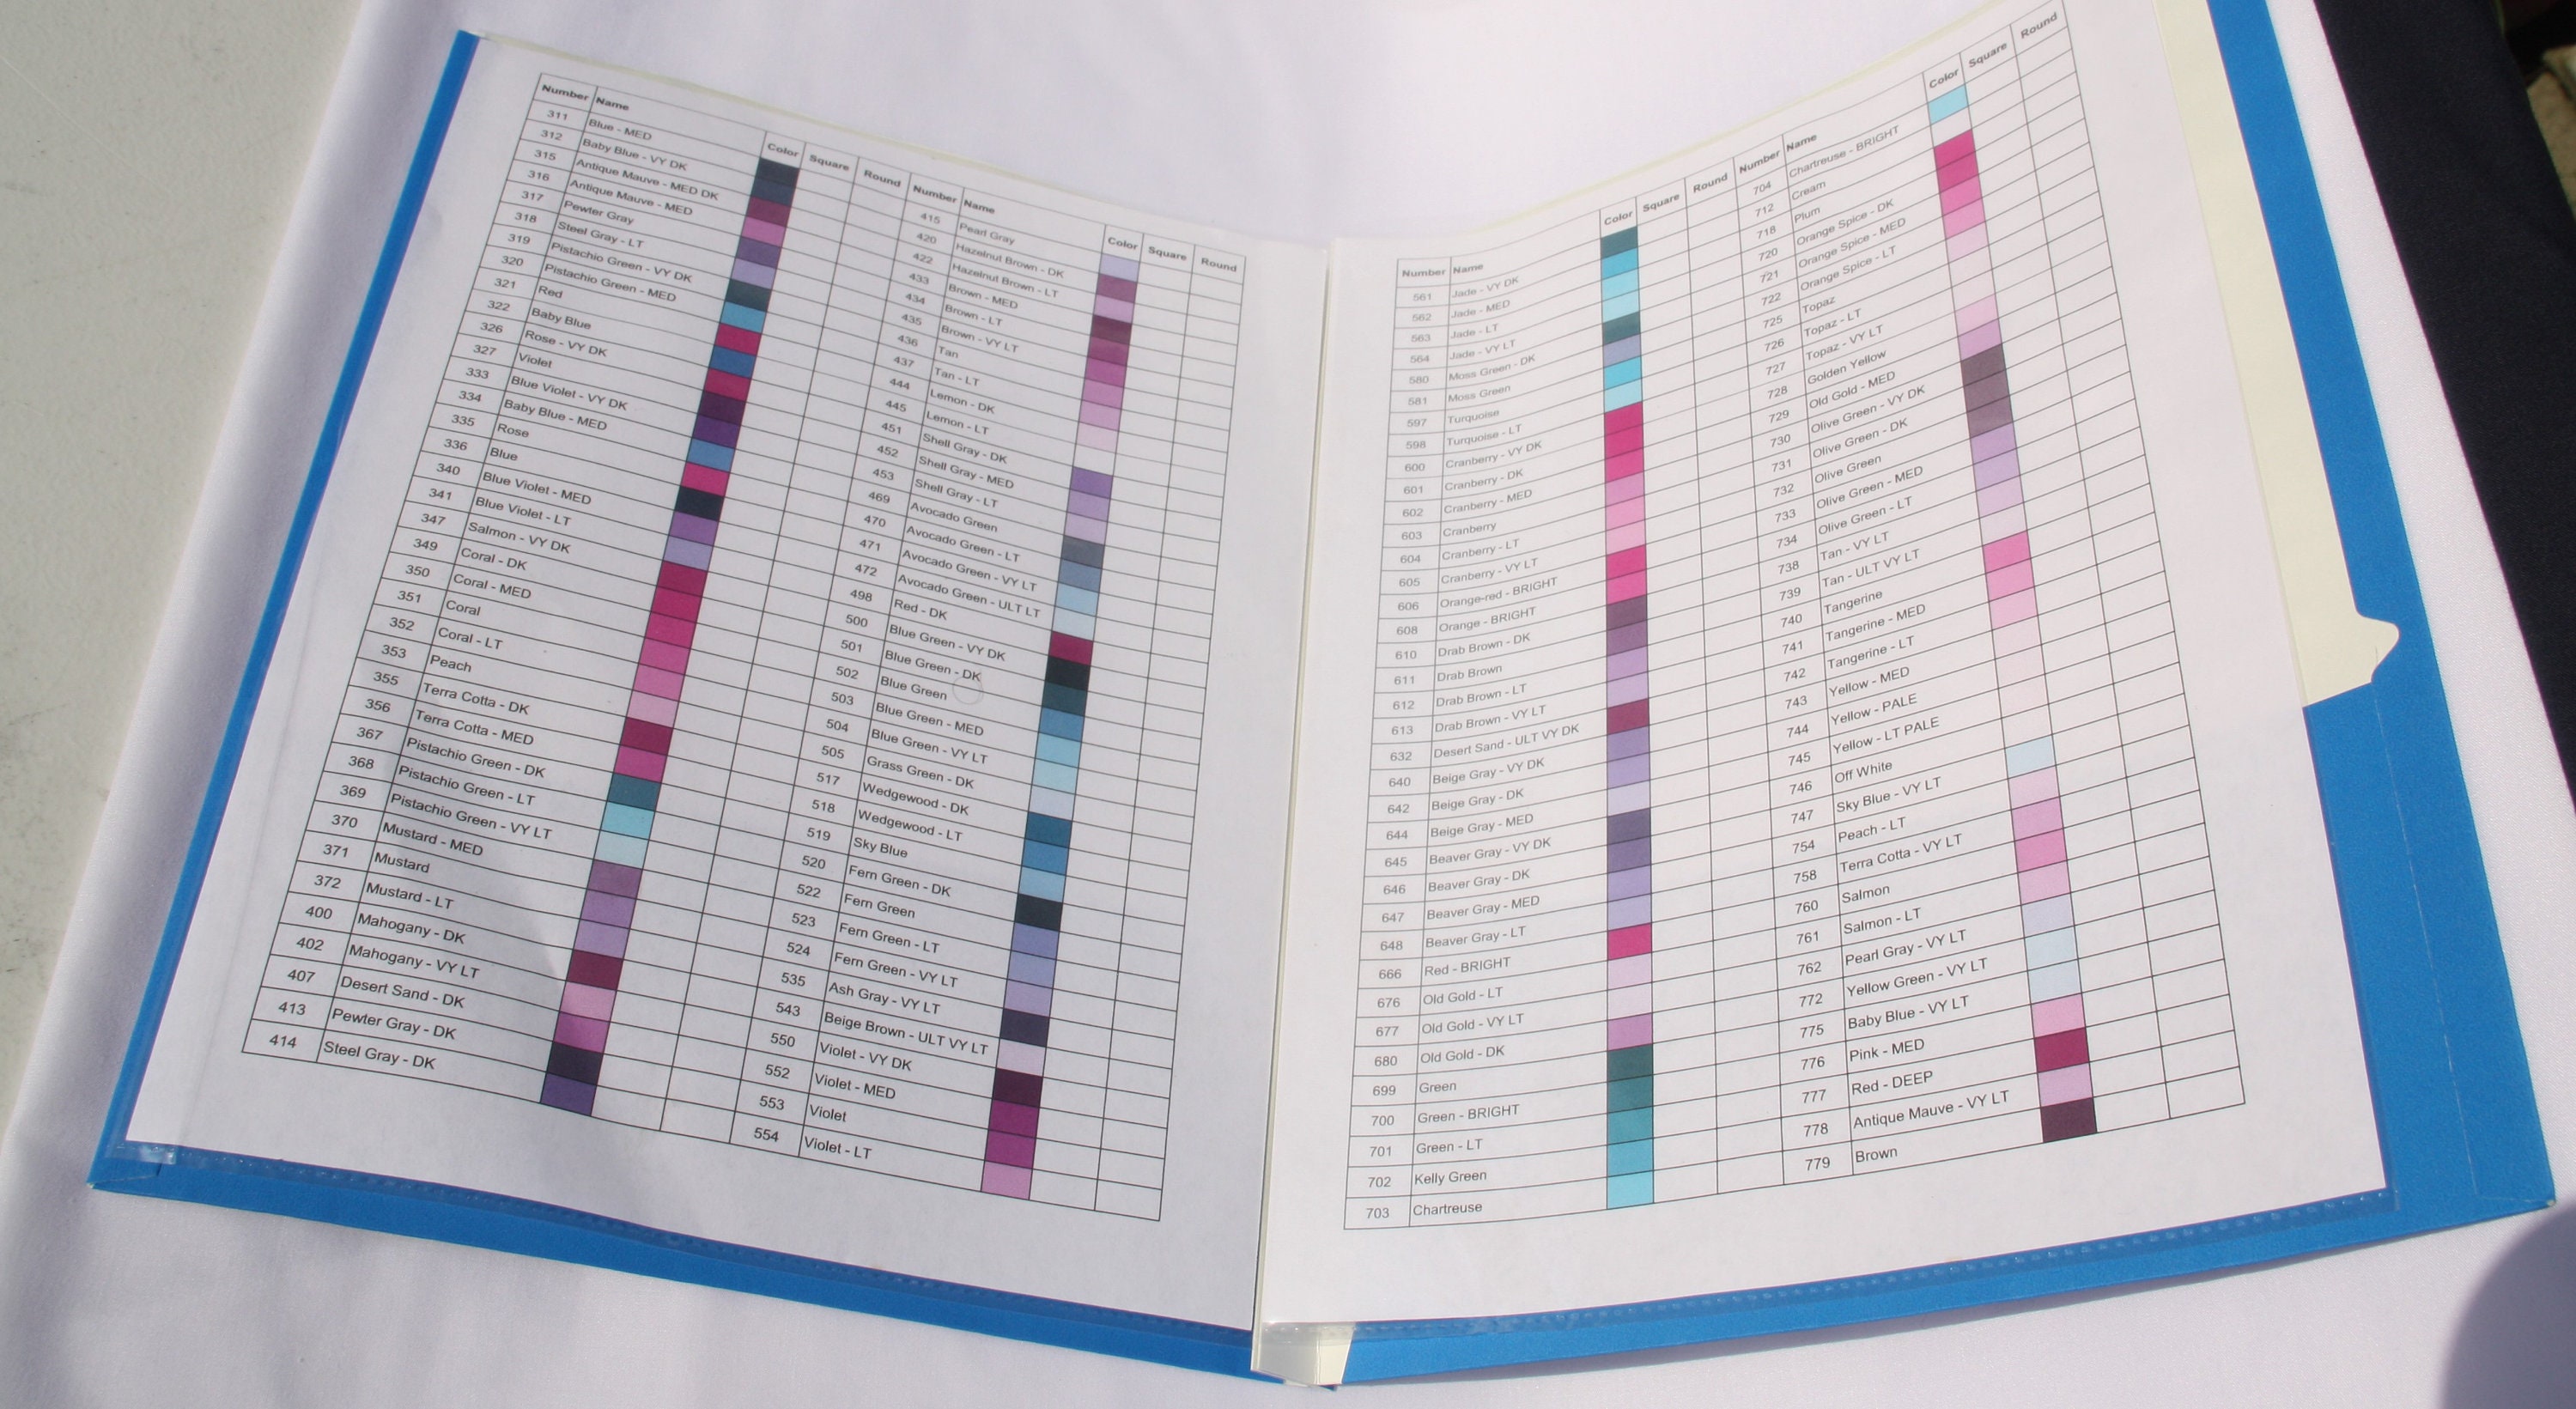 Number Name Color Square Round
311 Blue - MED
312 Baby Blue - VY DK
315 Antique Mauve - MED DK
316 Antique Mauve - MED
317 Pewter Gray
318 Steel Gray - LT
319 Pistachio Green - VY DK
320 Pistachio Green - MED
321 Red
322 Baby Blue
326 Rose - VY DK
327 Violet
333 Blue Violet - VY DK
334 Baby Blue - MED
335 Rose
336 Blue
340 Blue Violet - MED
341 Blue Violet - LT
347 Salmon - VY DK
349 Coral - DK
350 Coral - MED
351 Coral
352 Coral - LT
353 Peach
355 Terra Cotta - DK
356 Terra Cotta - MED
367 Pistachio Green - DK
368 Pistachio Green - LT
369 Pistachio Green - VY LT
370 Mustard - MED
371 Mustard
372 Mustard - LT
400 Mahogany - DK
402 Mahogany - VY LT
407 Desert Sand - DK
413 Pewter Gray - DK
414 Steel Gray - DK
Number Name Color Square Round
415 Pearl Gray
420 Hazelnut Brown - DK
422 Hazelnut Brown - LT
433 Brown - MED
434 Brown - LT
435 Brown - VY LT
436 Tan
437 Tan - LT
444 Lemon - DK
445 Lemon - LT
451 Shell Gray - DK
452 Shell Gray - MED
453 Shell Gray - LT
469 Avocado Green
470 Avocado Green - LT
471 Avocado Green - VY LT
472 Avocado Green - ULT LT
498 Red - DK
500 Blue Green - VY DK
501 Blue Green - DK
502 Blue Green
503 Blue Green - MED
504 Blue Green - VY LT
505 Grass Green - DK
517 Wedgewood - DK
518 Wedgewood - LT
519 Sky Blue
520 Fern Green - DK
522 Fern Green
523 Fern Green - LT
524 Fern Green - VY LT
535 Ash Gray - VY LT
543 Beige Brown - ULT VY LT
550 Violet - VY DK
552 Violet - MED
553 Violet
554 Violet - LT
Number Name Color Square Round
561 Jade - VY DK
562 Jade - MED
563 Jade - LT
564 Jade - VY LT
580 Moss Green - DK
581 Moss Green
597 Turquoise
598 Turquoise - LT
600 Cranberry - VY DK
601 Cranberry - DK
602 Cranberry - MED
603 Cranberry
604 Cranberry - LT
605 Cranberry - VY LT
606 Orange-red - BRIGHT
608 Orange - BRIGHT
610 Drab Brown - DK
611 Drab Brown
612 Drab Brown - LT
613 Drab Brown - VY LT
632 Desert Sand - ULT VY DK
640 Beige Gray - VY DK
642 Beige Gray - DK
644 Beige Gray - MED
645 Beaver Gray - VY DK
646 Beaver Gray - DK
647 Beaver Gray - MED
648 Beaver Gray - LT
666 Red - BRIGHT
676 Old Gold - LT
677 Old Gold - VY LT
680 Old Gold - DK
699 Green
700 Green - BRIGHT
701 Green - LT
702 Kelly Green
703 Chartreuse
Number Name Color Square Round
704 Chartreuse - BRIGHT
712 Cream
718 Plum
720 Orange Spice - DK
721 Orange Spice - MED
722 Orange Spice - LT
725 Topaz
726 Topaz - LT
727 Topaz - VY LT
728 Golden Yellow
729 Old Gold - MED
730 Olive Green - VY DK
731 Olive Green - DK
732 Olive Green
733 Olive Green - MED
734 Olive Green - LT
738 Tan - VY LT
739 Tan - ULT VY LT
740 Tangerine
741 Tangerine - MED
742 Tangerine - LT
743 Yellow - MED
744 Yellow - PALE
745 Yellow - LT PALE
746 Off White
747 Sky Blue - VY LT
754 Peach - LT
758 Terra Cotta - VY LT
760 Salmon
761 Salmon - LT
762 Pearl Gray - VY LT
772 Yellow Green - VY LT
775 Baby Blue - VY LT
776 Pink - MED
777 Red - DEEP
778 Antique Mauve - VY LT
779 Brown